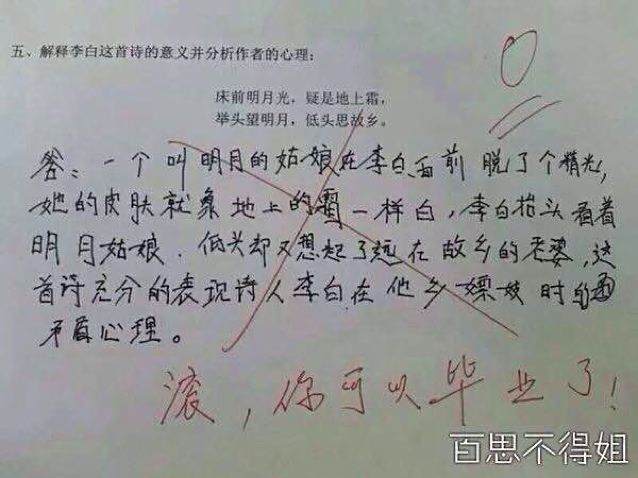 五、解释李白这首诗的意义并分析作者的心理：
0
床前明月光，疑是地上霜，
举头望明月，低头思故乡。
答：一个叫明月的姑娘在李白面前脱了个精光，
她的皮肤就象地上的霜一样白，李白抬头看着
明月姑娘．低头却又想起了远在故乡的老婆，这
首诗充分的表现诗人李白在他乡嫖妓时的
矛盾心理。
滚，你可以毕业了！
百思不得姐